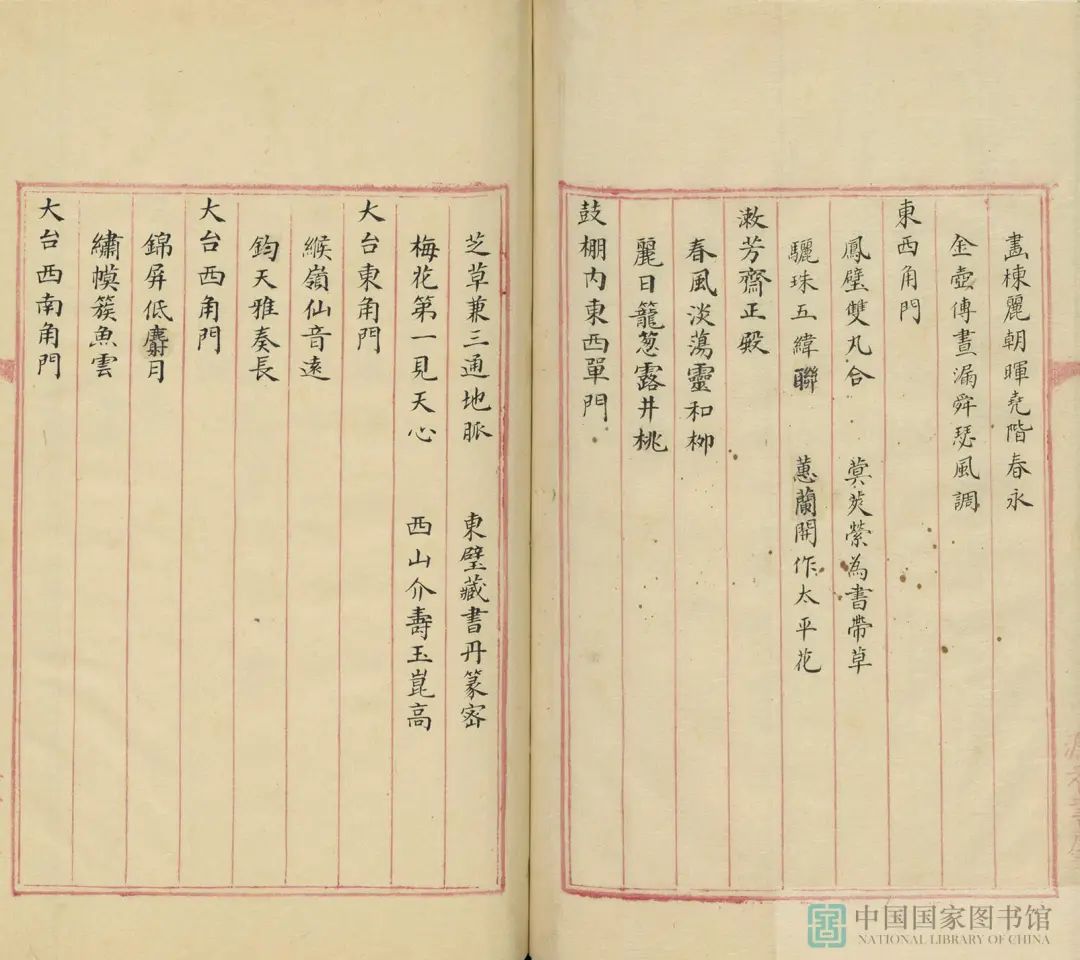 畫棟麗朝暉堯階春永
金壺傳晝漏舜瑟風調
東西角門
鳳璧雙丸合　蓂莢縈為書帶草
驪珠五緯聯　蕙蘭開作太平花
漱芳齋正殿
春風淡蕩靈和柳
麗日籠葱露井桃
鼓棚内東西單門
芝草兼三通地脈　東壁藏書丹篆宻
梅花第一見天心　西山介壽玉崑高
大台東角門
緱嶺仙音遠
鈞天雅奏長
大台西角門
錦屏低麝月
繡幙簇魚雲
大台西南角門
中国国家图书馆
NATIONAL LIBRARY OF CHINA